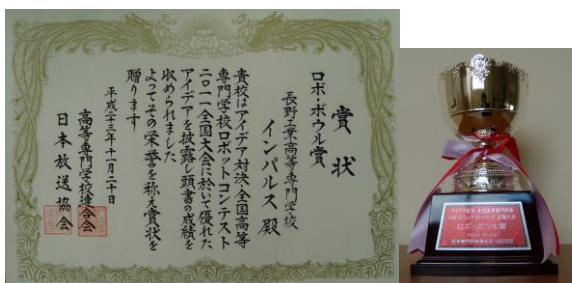 賞状
ロボ・ボウル賞
長野工業高等専門学校
インパルス 殿
貴校はアイデア対決・全国高等
専門学校ロボットコンテスト
二〇一一全国大会に於いて優れた
アイデアを披露し頭書の成績を
収められました
よってその栄誉を称え賞状を
贈ります
平成二十三年十一月二十日
高等専門学校連合会
日本放送協会
ロボ・ボウル賞